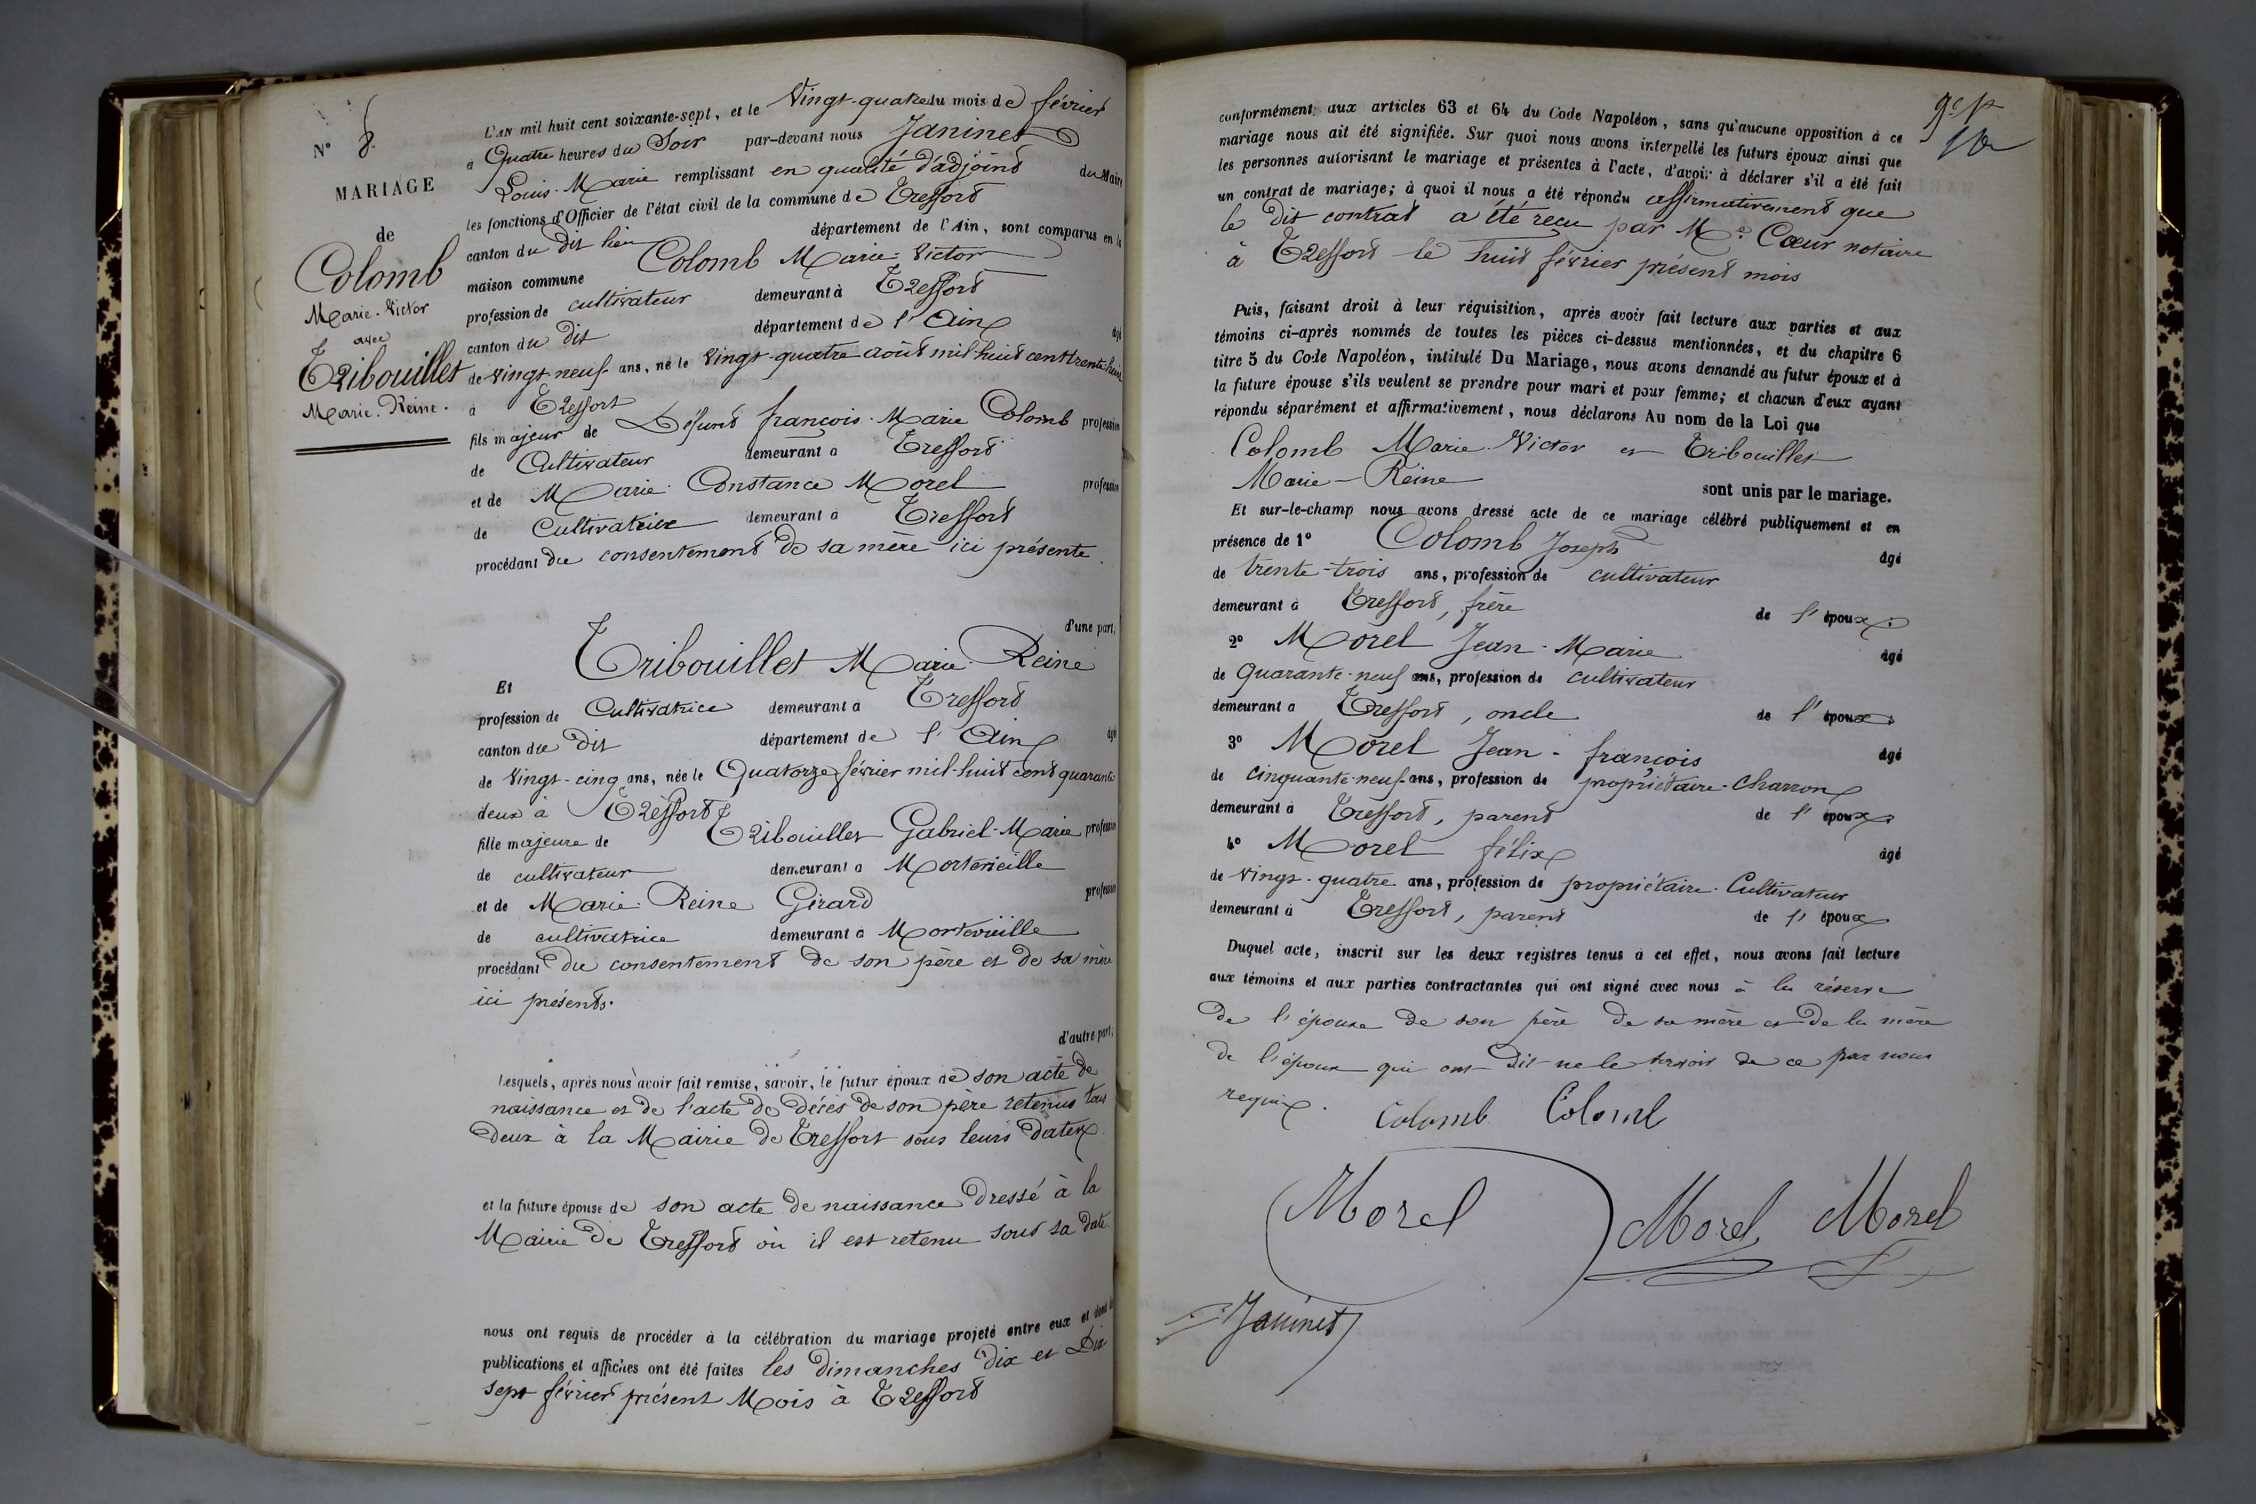 N° 8
MARIAGE
de
Colomb
Marie-Victor
avec
Tribouillet
Marie-Reine.
L'AN mil huit cent soixante-sept, et le Vingt-quatre du mois de février
à Quatre heures du Soir par-devant nous Janinet
Louis-Marie remplissant en qualité d'adjoint du Maire
les fonctions d'Officier de l'état civil de la commune de Treffort
canton du dit lieu département de l'Ain, sont comparus en la
maison commune Colomb Marie-Victor
profession de cultivateur demeurant à Treffort
canton du dit département de l'Ain âgé
de vingt-neuf ans, né le vingt-quatre août mil huit cent trente-huit
à Treffort
fils majeur de Défunt françois-Marie Colomb profession
de Cultivateur demeurant à Treffort
et de Marie Constance Morel profession
de Cultivatrice demeurant à Treffort
procédant du consentement de sa mère ici présente.
d'une part,
Et Tribouillet Marie-Reine
profession de Cultivatrice demeurant à Treffort
canton du dit département de l'Ain âgé
de vingt-cinq ans, née le Quatorze février mil huit cent quarante-
deux à Treffort
fille majeure de Tribouillet Gabriel-Marie profession
de cultivateur demeurant à Mortevieille
et de Marie-Reine Girard profession
de cultivatrice demeurant à Mortevieille
procédant du consentement de son père et de sa mère
ici présents.
d'autre part;
Lesquels, après nous avoir fait remise, savoir, le futur époux de son acte de
naissance et de l'acte de décès de son père retenus tous
deux à la Mairie de Treffort sous leurs dates
et la future épouse de son acte de naissance dressé à la
Mairie de Treffort où il est retenu sous sa date
nous ont requis de procéder à la célébration du mariage projeté entre eux et dont les
publications et affiches ont été faites les dimanches dix et Dix
sept février présent Mois à Treffort
conformément aux articles 63 et 64 du Code Napoléon, sans qu'aucune opposition à ce
mariage nous ait été signifiée. Sur quoi nous avons interpellé les futurs époux ainsi que
les personnes autorisant le mariage et présentes à l'acte, d'avoir à déclarer s'il a été fait
un contrat de mariage; à quoi il nous a été répondu affirmativement que
le dit contrat a été reçu par Me Cœur notaire
à Treffort le huit février présent mois
Puis, faisant droit à leur réquisition, après avoir fait lecture aux parties et aux
témoins ci-après nommés de toutes les pièces ci-dessus mentionnées, et du chapitre 6
titre 5 du Code Napoléon, intitulé Du Mariage, nous avons demandé au futur époux et à
la future épouse s'ils veulent se prendre pour mari et pour femme; et chacun d'eux ayant
répondu séparément et affirmativement, nous déclarons Au nom de la Loi que
Colomb Marie-Victor et Tribouillet
Marie-Reine sont unis par le mariage.
Et sur-le-champ nous avons dressé acte de ce mariage célébré publiquement et en
présence de 1° Colomb Joseph âgé
de trente-trois ans, profession de cultivateur
demeurant à Treffort, frère de l'époux.
2° Morel Jean-Marie âgé
de Quarante-neuf ans, profession de cultivateur
demeurant à Treffort, oncle de l'époux.
3° Morel Jean-françois âgé
de cinquante-neuf ans, profession de propriétaire-charron
demeurant à Treffort, parent de l'époux.
4° Morel félix âgé
de vingt-quatre ans, profession de propriétaire-Cultivateur
demeurant à Treffort, parent de l'époux
Duquel acte, inscrit sur les deux registres tenus à cet effet, nous avons fait lecture
aux témoins et aux parties contractantes qui ont signé avec nous à la réserve
de l'épouse de son père de sa mère et de la mère
de l'époux qui ont dit ne le savoir de ce par nous
requis.
Colomb Colomb
Morel Morel Morel
Janinet